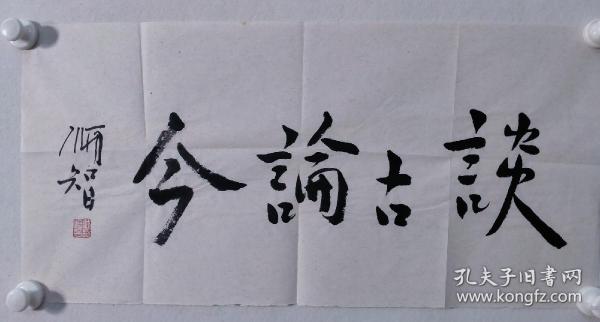 談古論今
炳智
孔夫子旧书网
www.kongfz.com